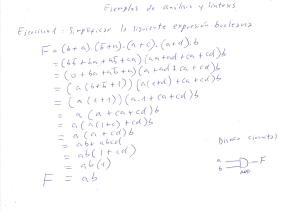 Ejemplos de análisis y síntesis
Ejercicio 1: Simplificar la siguiente expresión booleana
F = (b+a).(b̅+a).(a+c).(a+d).b
= (bb̅ + ba + ab̅ + aa)(aa+ad+ca+cd)b
= (0+ba+ab̅+a)(a+ad+ca+cd)b
= (a(b+b̅+1))(a(1+d)+ca+cd)b
= (a(1+1))(a.1+ca+cd)b
= a(a+ca+cd)b
= a(a(1+c)+cd)b
= a(a+cd)b
= ab+abcd
= ab(1+cd)
= ab(1)
F = ab
Diseño circuital
a
b
F